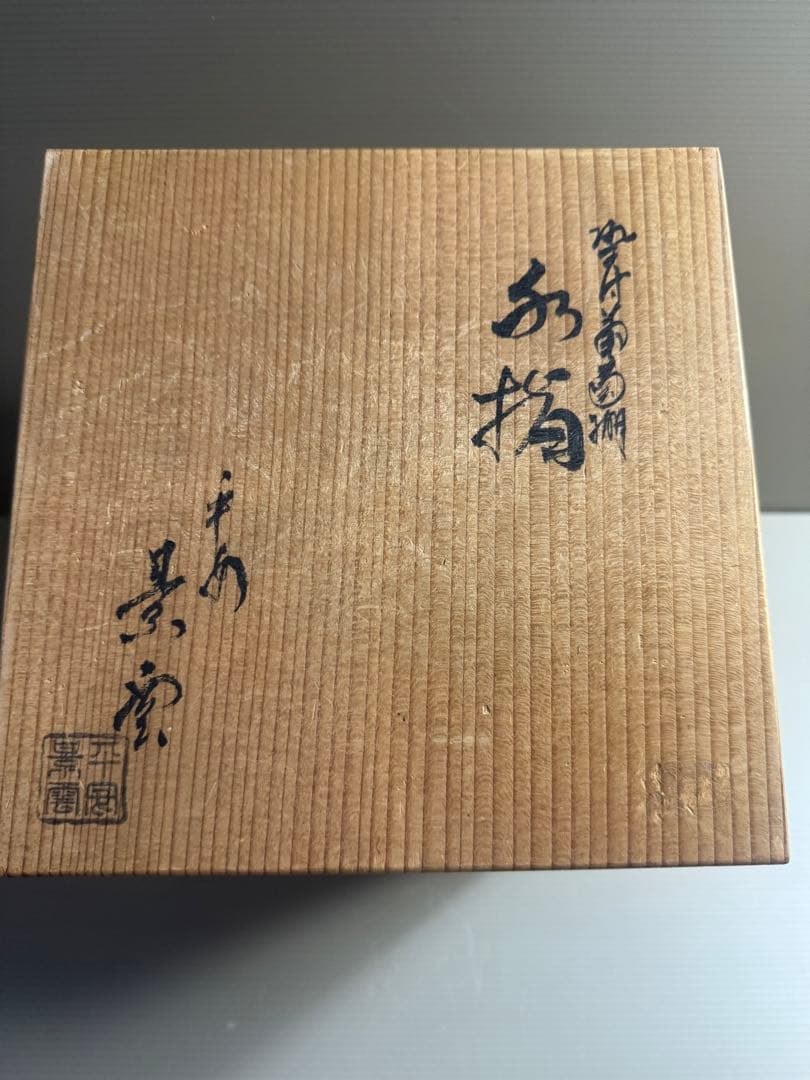 染付葡萄棚
水指
平安
景雲
平安
景雲